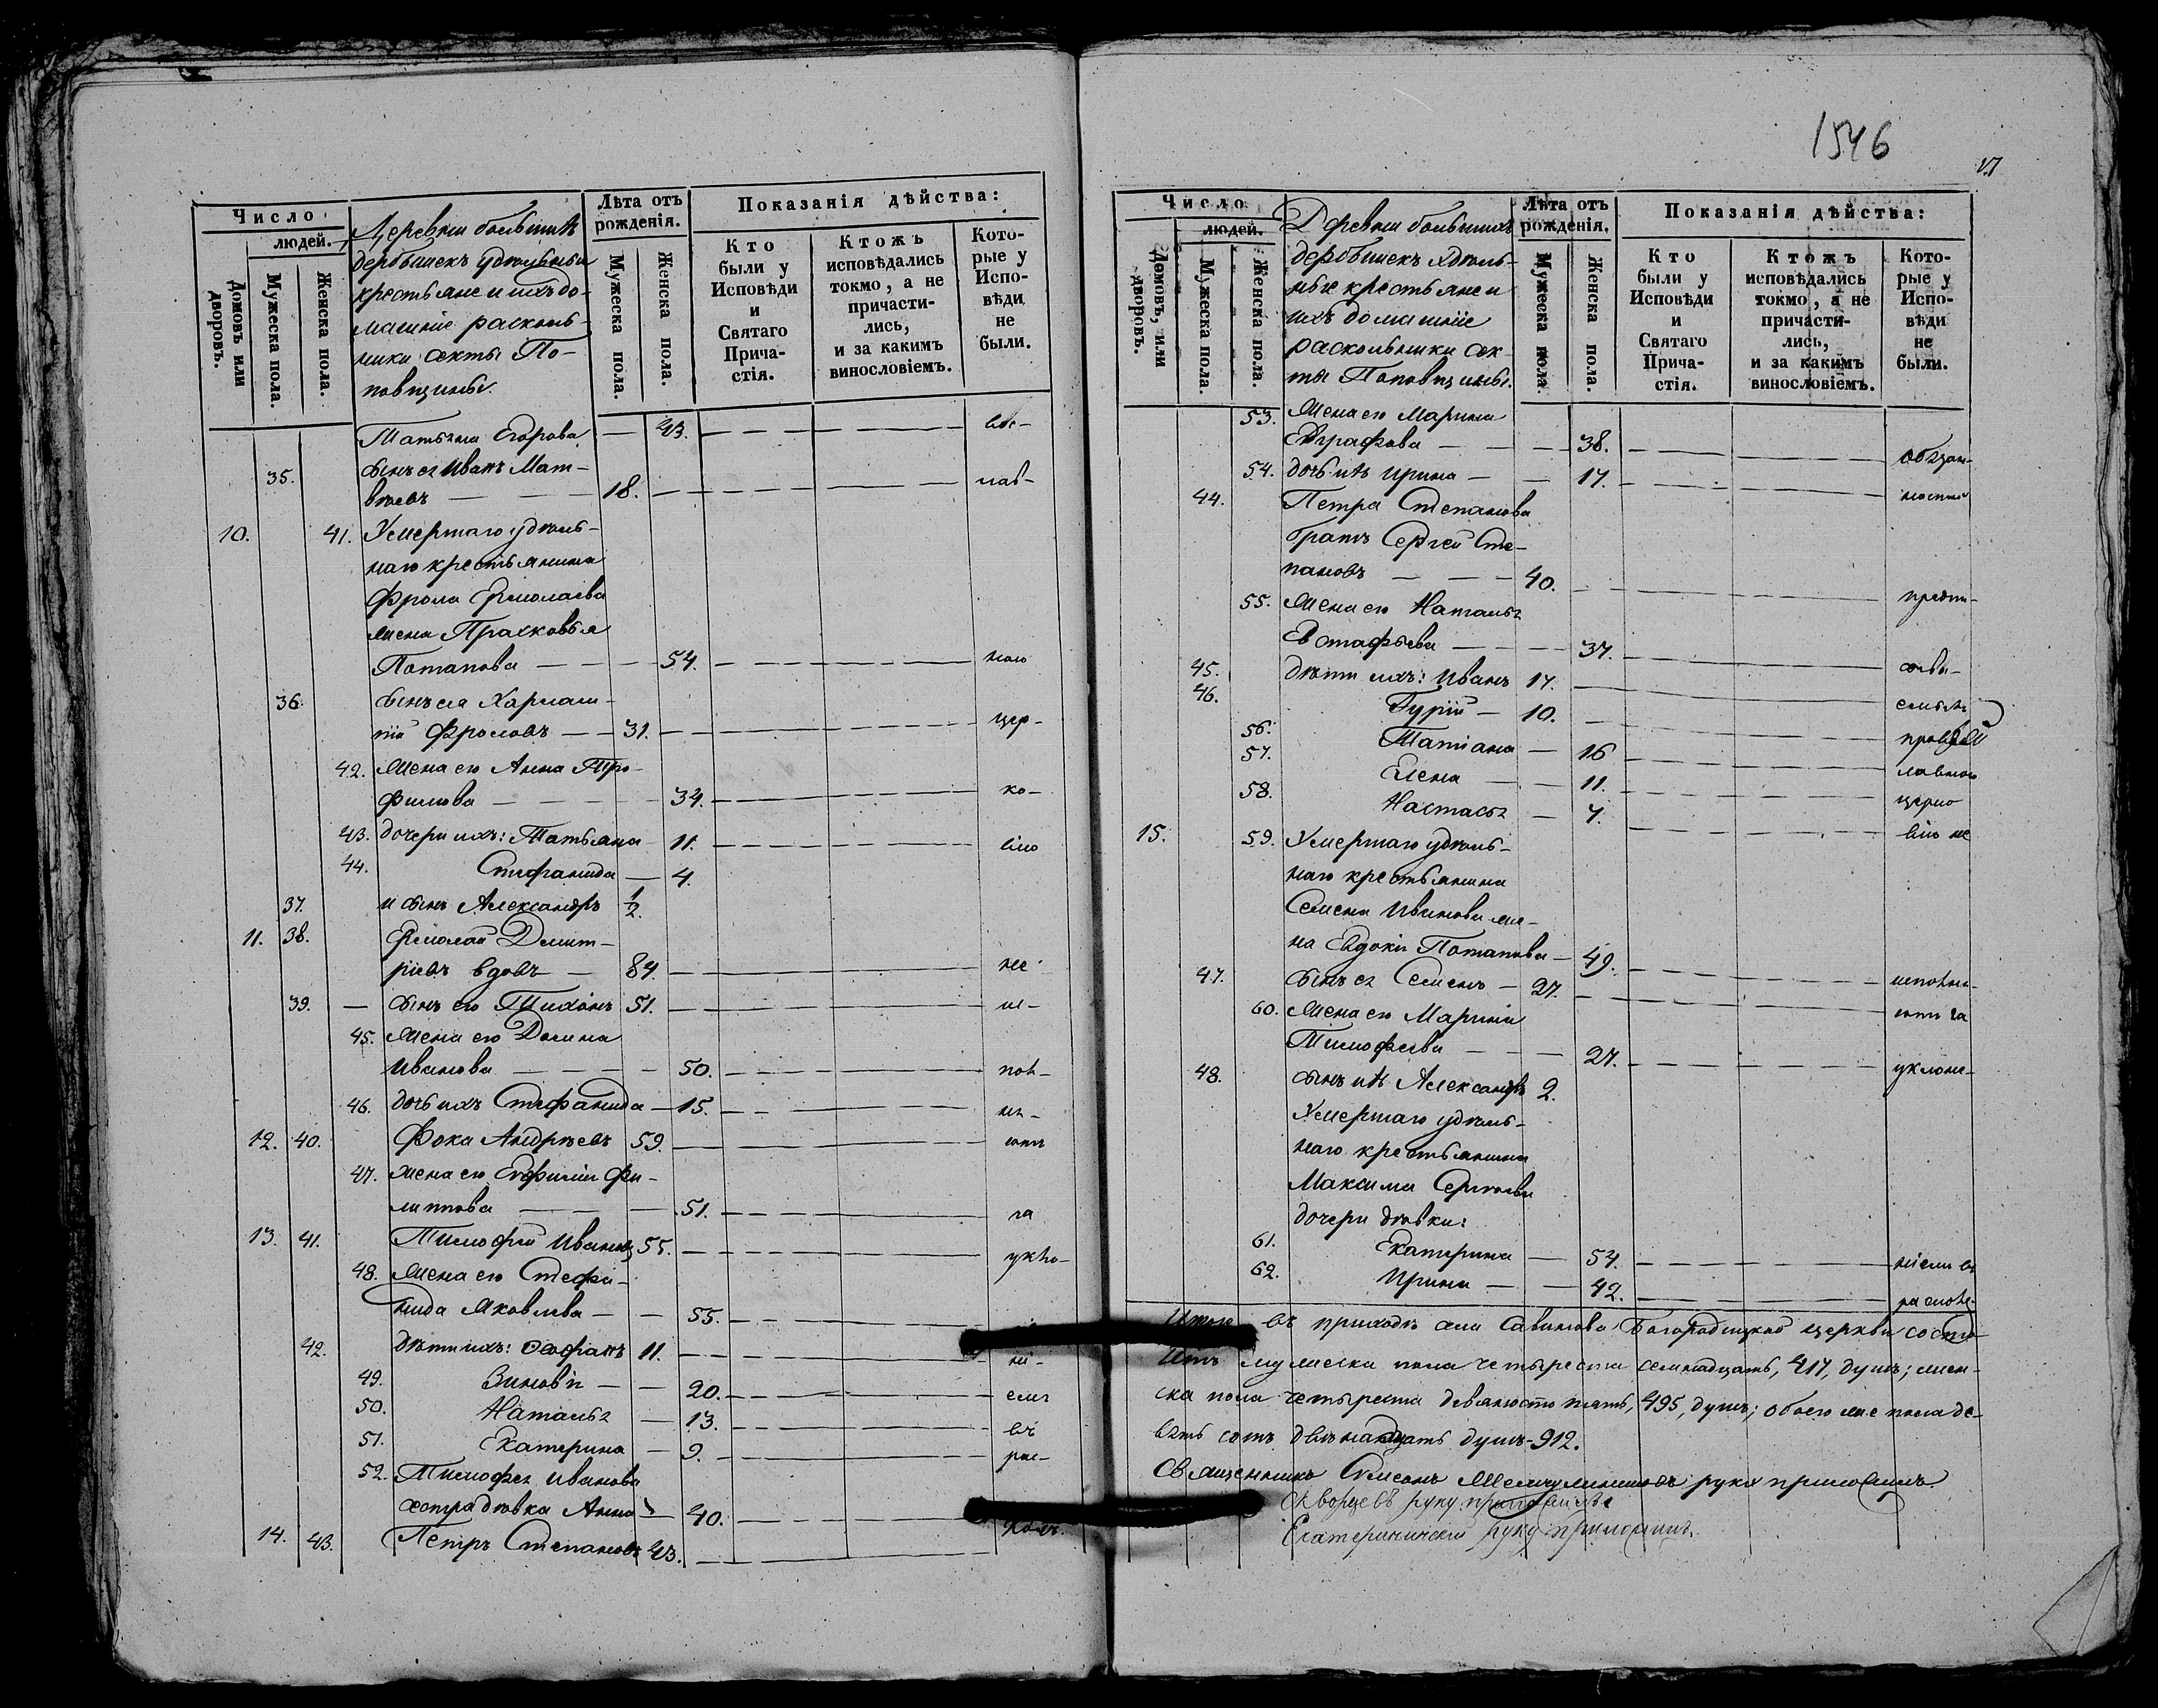 Число
людей.
Домовъ или дворовъ.
Мужеска пола.
Женска пола.
Деревни большихъ
дербышекъ удѣльные
крестьяне и ихъ до-
машніе расколь-
ники секты По-
повщины.
Лѣта отъ рожденія.
Мужеска пола.
Женска пола.
Показанія дѣйства:
Кто были у Исповѣди и Святаго Прича-стія.
Ктожъ исповѣдались токмо, а не причасти-лись, и за какимъ винословіемъ.
Кото-рые у Испо-вѣди не были.
Татьяна Егорова — 43.
35. сынъ ея Иванъ Мат- — — — слав-
вѣевъ — — 18.
10. 41. Умершаго удѣль-
наго крестьянина
Фрола Ермолаева
жена Прасковья
Потапова — — — 54. — — — ною
36. сынъ ея Харлам-
пій Фроловъ — — 31. — — — цер-
42. жена его Анна Тро-
фимова — — — 34. — — — ко-
43. дочери ихъ: Татьяна 11. — — — вію
44. Стефанида — 4.
37. и сынъ Александръ 1/2.
11. 38. Ермолай Дмит-
ріевъ вдовъ — 84. — — — не
39. — сынъ его Тихонъ 51. — — — ис-
45. жена его Домна
Иванова — — — 50. — — — пол-
46. дочь ихъ Стефанида — 15. — — — ня-
12. 40. Фока Андрѣевъ 59. — — — ютъ
47. жена его Евфимія Фи-
липпова — — — 51. — — — за
13. 41. Тимофей Ивановъ 55. — — — укло-
48. жена его Стефа-
нида Яковлева — — 55.
42. дѣти ихъ: Феофанъ 11. — — — ні-
49. Зиновія — — 20. — — — емъ
50. Наталья — 13. — — — въ
51. Екатерина — 9. — — — рас-
52. Тимофея Иванова
сестра дѣвка Анна — 40.
14. 43. Петръ Степановъ 43. — — — колъ.
1546
Число
людей.
Домовъ, или дворовъ.
Мужеска пола.
Женска пола.
Деревни большихъ
дербышекъ удѣль-
ные крестьяне и
ихъ домашніе
раскольники сек-
ты Поповщины.
Лѣта отъ рожденія.
Мужеска пола.
Женска пола.
Показанія дѣйства:
Кто были у Исповѣди и Святаго Прича-стія.
Ктожъ исповѣдались токмо, а не причасти-лись, и за какимъ винословіемъ.
Кото-рые у Испо-вѣди не были.
53. Жена его Марина
Евграфова — — — 38. — — — обязан-
54. дочь ихъ Ирина — — 17. — — — ностей
44. Петра Степанова
братъ Сергей Сте-
пановъ — — — 40. — — — предпи-
55. жена его Наталья
Евстафьева — — — 37.
45. дѣти ихъ: Иванъ 17.
46. Гурій — 10.
56. Татіана — 16 — — — славною
57. Елена — — 11. — — — церко
58. Настасья — 7. — — — вію не
15. 59. Умершаго удѣль-
наго крестьянина
Семена Иванова же-
на Евдокія Потапова — 49. — — — исполня-
47. сынъ ея Семенъ — 27. — — — ютъ за
60. жена его Марина
Тимофеева — — — 27. — — — уклоне-
48. сынъ ихъ Александръ 2.
Умершаго удѣль-
наго крестьянина
Максима Сергѣева
дочери дѣвки:
61. Екатерина — 54. — — — ніемъ въ
62. Ирина — — 42. — — — расколъ.
Итого въ приходѣ села Савинова Богородицкой церкви состо-
итъ мужеска пола четыреста семнадцать, 417, душъ; жен-
ска пола четыреста девяносто пять, 495, душъ; обоего же пола де-
вять сотъ двѣнадцать душъ — 912.
Священникъ Симеонъ руку приложилъ.
Скворцевъ руку приложилъ
Екатерининскій руку приложилъ.